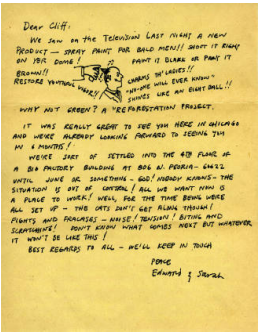 Dear Cliff:
WE SAW ON THE TELEVISION LAST NIGHT A NEW
PRODUCT — SPRAY PAINT FOR BALD MEN!! SHOOT IT RIGHT
ON YER DOME! PAINT IT BLACK OR PAINT IT
BROWN!! CHARMS TH' LADIES!!
RESTORE YOUTHFUL VIGOR!! "NO-ONE WILL EVER KNOW"
SHINES LIKE AN EIGHT BALL!!
WHY NOT GREEN? A "REFORESTATION" PROJECT.
IT WAS REALLY GREAT TO SEE YOU HERE IN CHICAGO
AND WE'RE ALREADY LOOKING FORWARD TO SEEING YOU
IN 6 MONTHS!
WE'RE SORT OF SETTLED INTO THE 4TH FLOOR OF
A BIG FACTORY BUILDING AT 806 N. PEORIA - 60622
UNTIL JUNE OR SOMETHING - GOD! NOBODY KNOWS - THE
SITUATION IS OUT OF CONTROL! ALL WE WANT NOW IS
A PLACE TO WORK! WELL, FOR THE TIME BEING WE'RE
ALL SET UP - THE CATS DON'T GET ALONG THOUGH!
FIGHTS AND FRACASES - NOISE! TENSION! BITING AND
SCRATCHING! DON'T KNOW WHAT COMES NEXT BUT WHATEVER
IT WON'T BE LIKE THIS!
BEST REGARDS TO ALL - WE'LL KEEP IN TOUCH
PEACE
EDWARD & SARAH